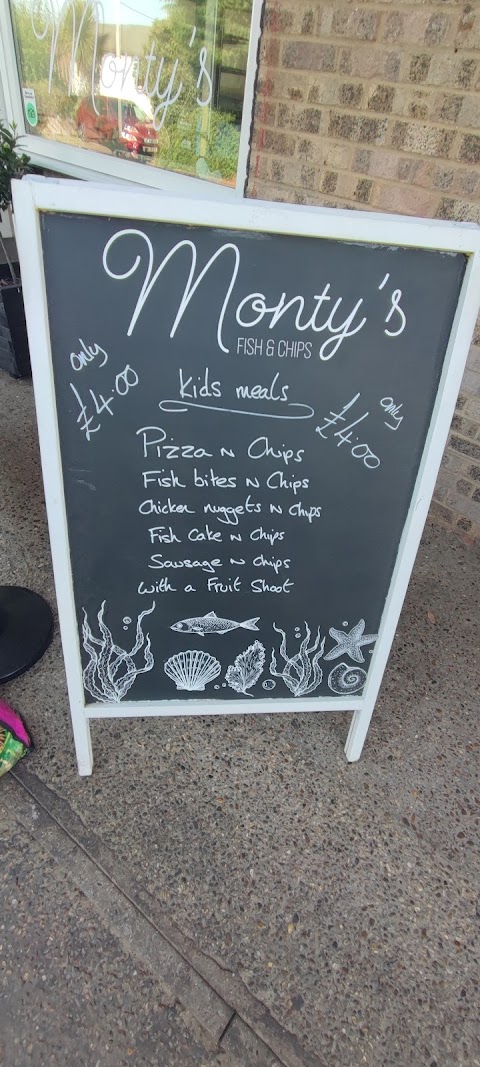 Monty's
Monty's
FISH & CHIPS
only
£4.00
Kids meals
only
£4.00
Pizza N Chips
Fish bites N Chips
Chicken nuggets N Chips
Fish Cake N Chips
Sausage N Chips
with a Fruit Shoot